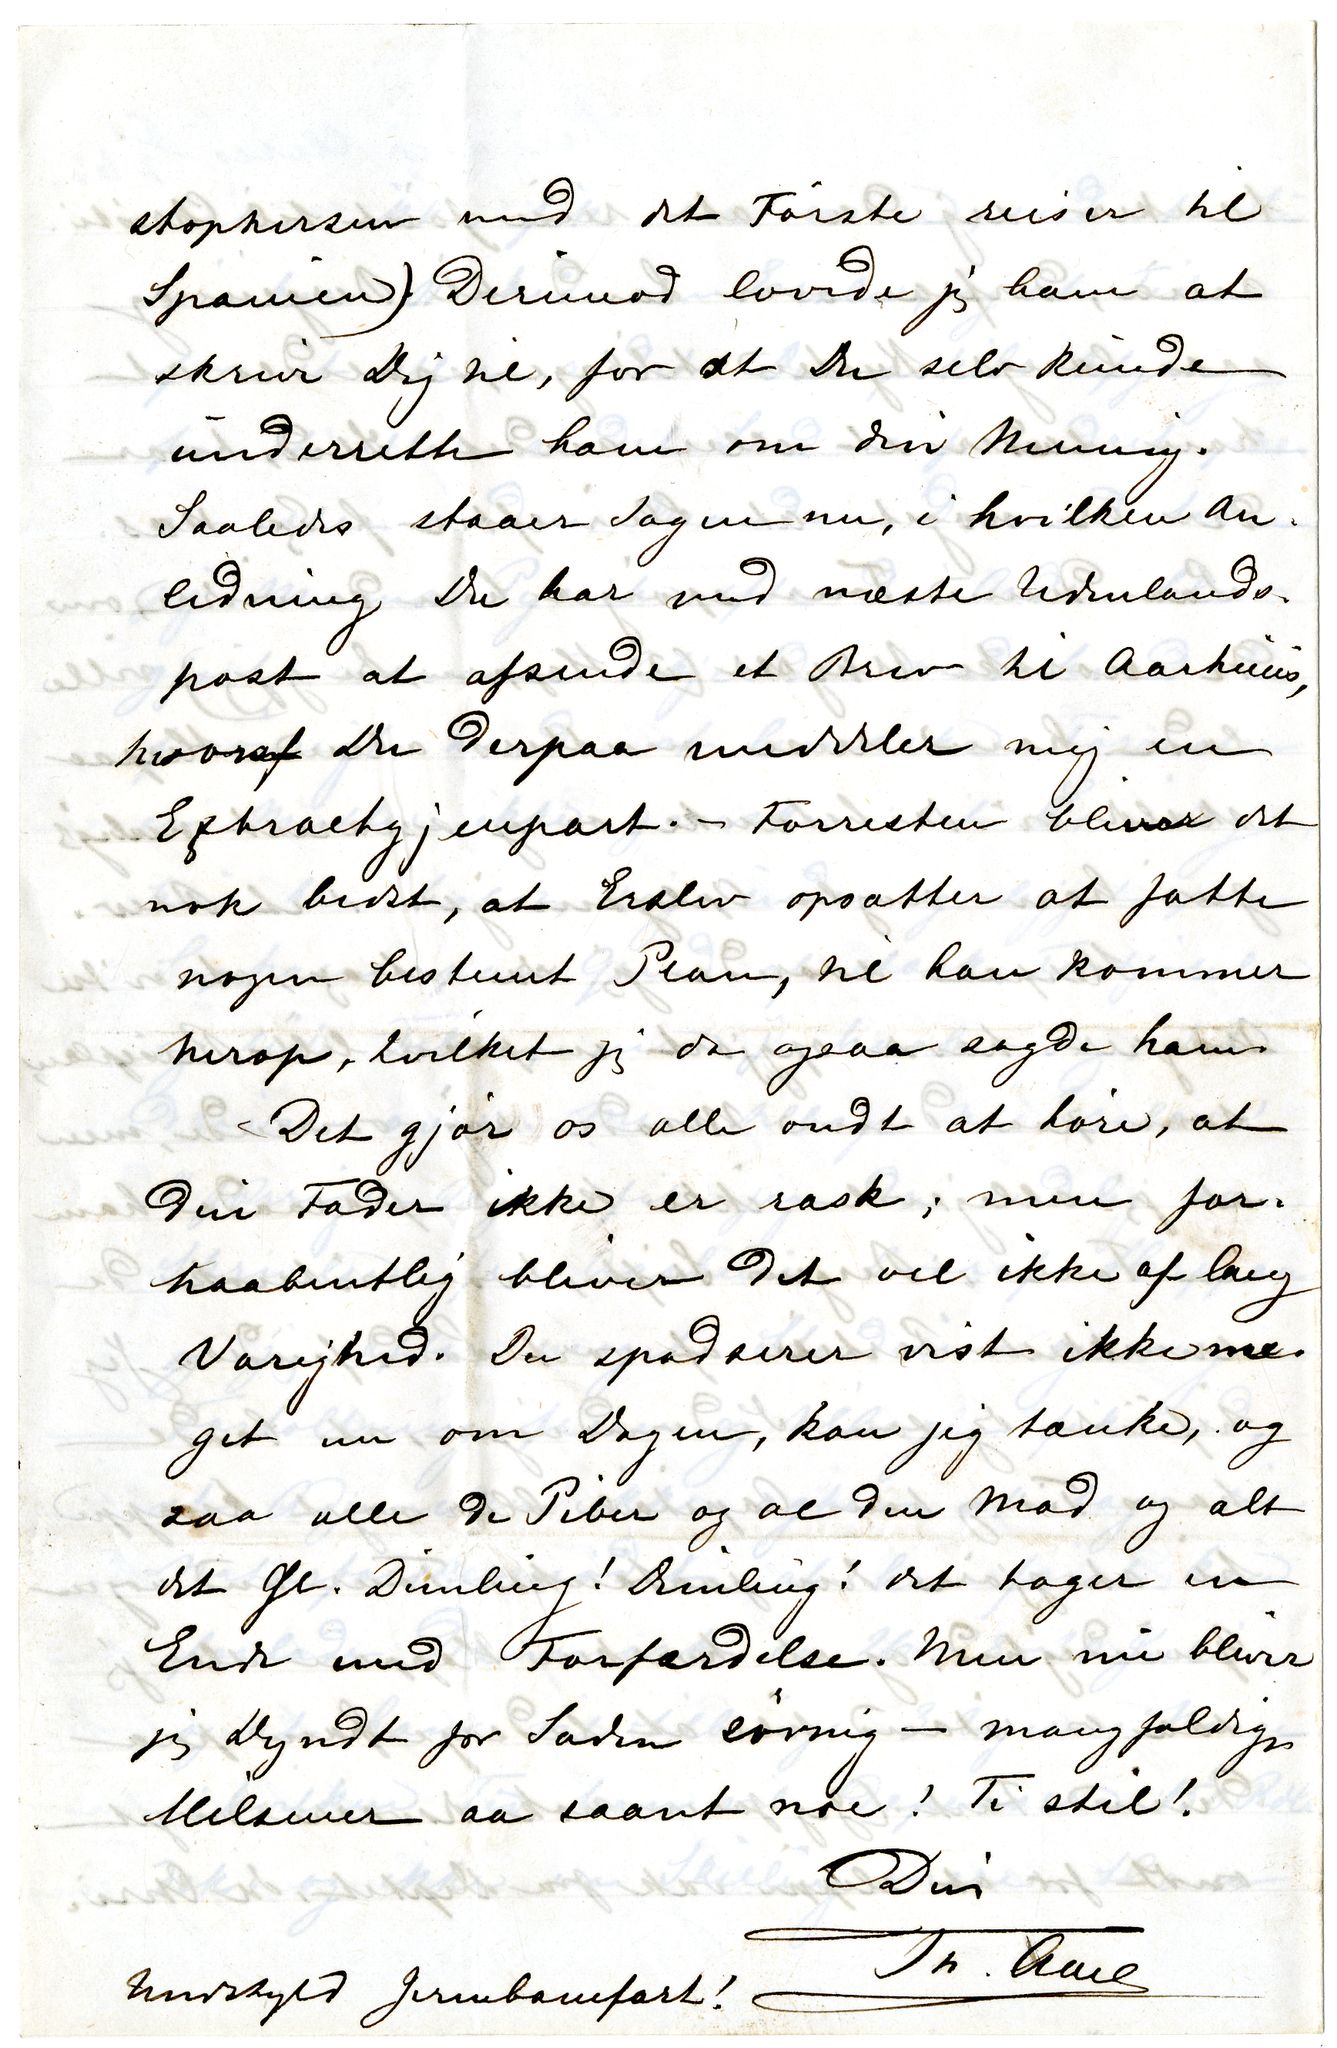 stophersen med det Förste reiser til
Spanien). Derimod lovede jeg ham at
skrive Dig til, for at Du selv kunde
underrette ham om din Mening.
Saaledes staaer Sagen nu, i hvilken An-
ledning Du har med næste Udenlands-
post at afsende et Brev til Aarhuus,
hvoraf Du derpaa meddeler mig en
Extractgjenpart. – Forresten bliver det
nok bedst, at Erslev opsætter at fatte
nogen bestemt Plan, til han kommer
herop, hvilket jeg da ogsaa sagde ham.
Det gjör os alle ondt at höre, at
Din Fader ikke er rask; men for-
haabentlig bliver det vel ikke af lang
Varighed. Du spadserer vist ikke me-
get nu om Dagen, kan jeg tænke, og
saa alle de Piber og al den Mad og alt
det Øl. Dimling! Dimling! det tager en
Ende med Forfærdelse. Men nu bliver
jeg Dyndt for Saden sövnig – mangfoldige
Hilsener aa saant noe! Ti stil!
Din
Th.
Undskyld Jernbanefart!